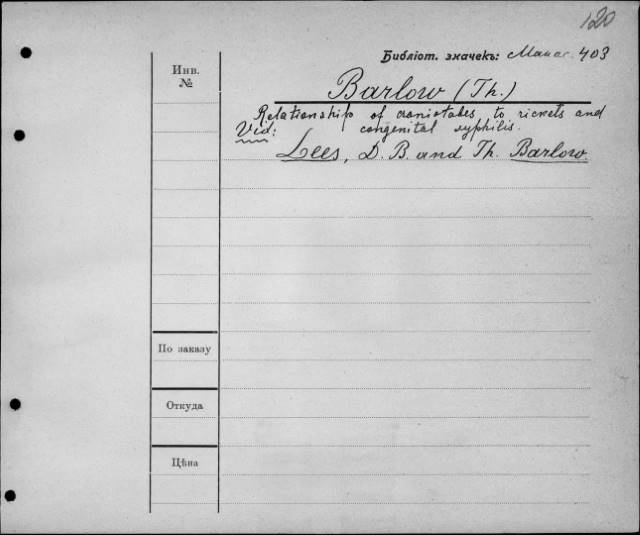 120
Библіот. значекъ: Манас. 403
Инв.
№
Barlow (Th.)
Relationship of craniotabes to rickets and
Vid: congenital syphilis.
Lees, D. B. and Th. Barlow.
По заказу
Откуда
Цѣна